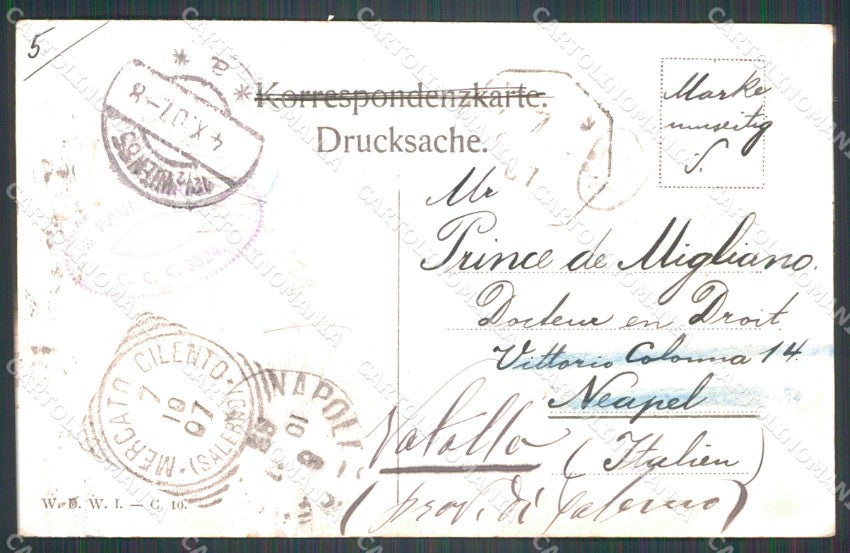 5
Korrespondenzkarte.
Drucksache.
Marke
umseitig
Mr
Prince de Migliano.
Docteur en Droit
Vittorio Colonna 14
Neapel
(Italien)
(prov. di Salerno)
4.X.07.-8
MERCATO CILENTO (SALERNO)
7
10
07
NAPOLI
10
C. C. C. 3324
W. D. W. I. — C. 10.
CARTOLINOMANIA